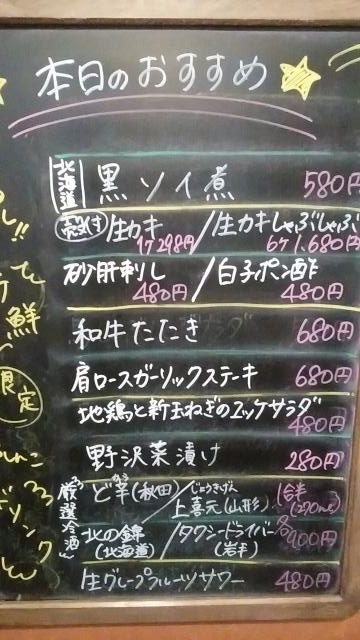 本日のおすすめ
北海道 黒ソイ煮 580円
殻付 生カキ 1ケ298円 / 生カキしゃぶしゃぶ 6ケ1,680円
砂肝刺し 480円 / 白子ポン酢 480円
和牛たたき 680円
肩ロースガーリックステーキ 680円
地鶏と新玉ねぎのユッケサラダ 480円
野沢菜漬け 280円
厳選冷酒
ど辛(秋田) / 上喜元(山形) じょうきげん 1合半(270ml)
北の錦(北海道) / タクシードライバー(岩手) 各900円
生グレープフルーツサワー 480円
鮮
限定